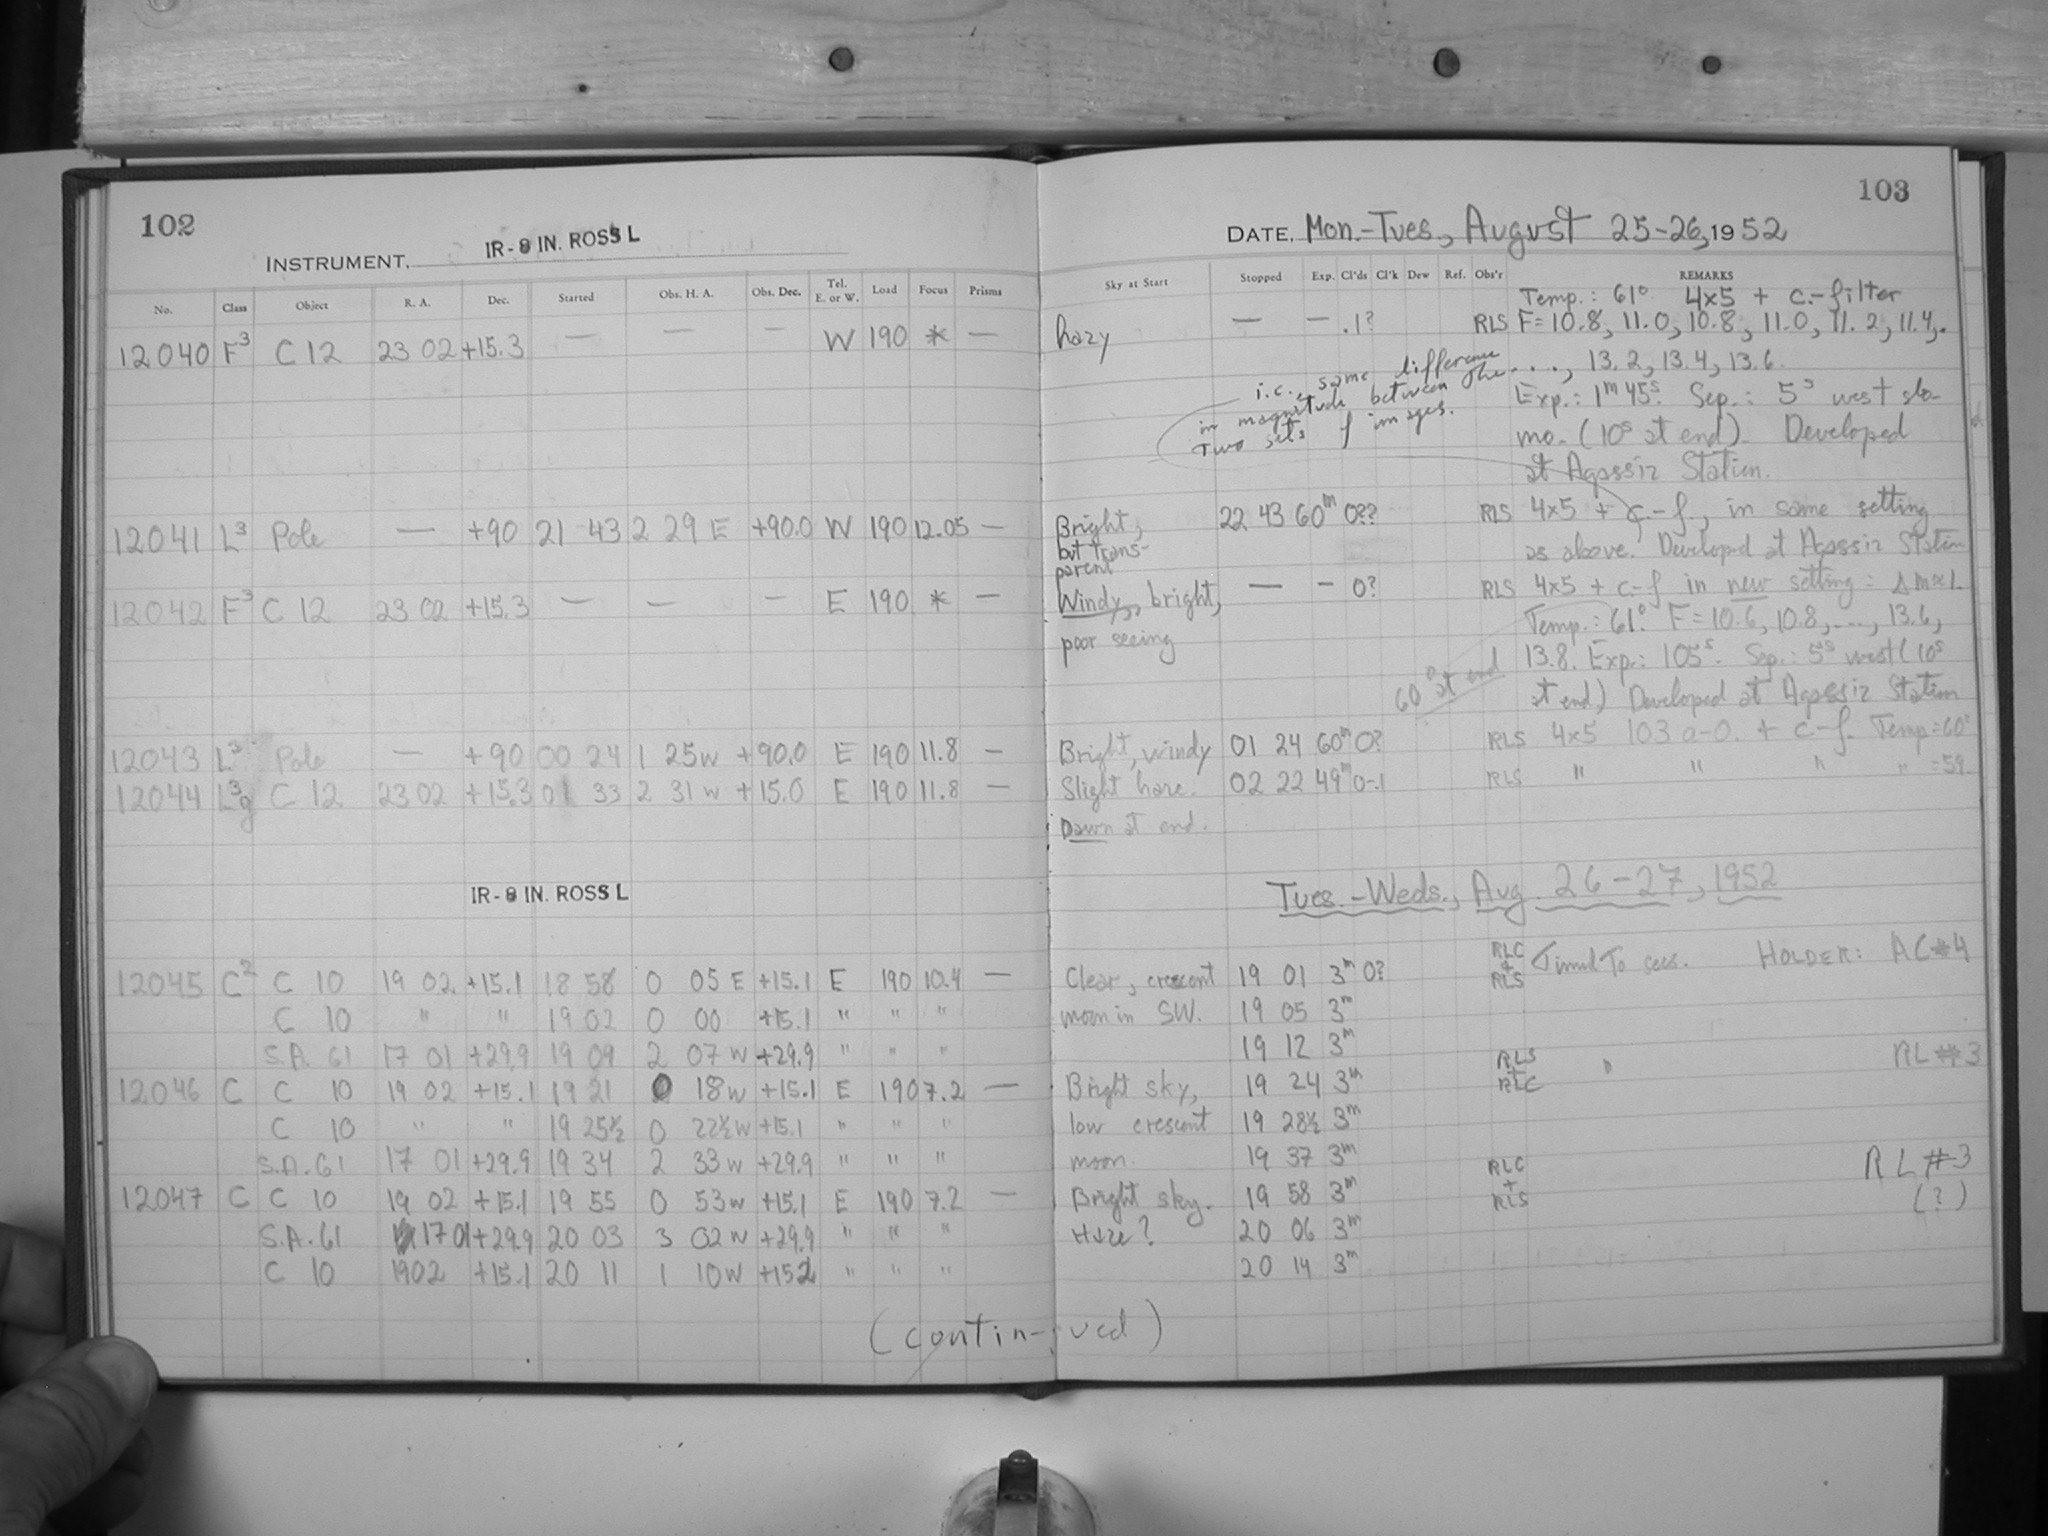 102
INSTRUMENT, IR-8 IN. ROSS L
No. Class Object R. A. Dec. Started Obs. H. A. Obs. Dec. Tel. E. or W. Load Focus Prisms
12040 F³ C 12 23 02 +15.3 — — — W 190 * —
12041 L³ Pole — +90 21 43 2 29 E +90.0 W 190 12.05 —
12042 F³ C 12 23 02 +15.3 — — — E 190 * —
12043 L³ Pole — +90 00 24 1 25w +90.0 E 190 11.8 —
12044 L³g C 12 23 02 +15.3 01 33 2 31 w +15.0 E 190 11.8 —
IR-8 IN. ROSS L
12045 C² C 10 19 02 +15.1 18 58 0 05 E +15.1 E 190 10.4 —
C 10 " " 19 02 0 00 +15.1 " " "
S.A. 61 17 01 +29.9 19 09 2 07 w +29.9 " " "
12046 C C 10 19 02 +15.1 19 21 0 18w +15.1 E 190 7.2 —
C 10 " " 19 25½ 0 22½ w +15.1 " " "
S.A. 61 17 01 +29.9 19 34 2 33 w +29.9 " " "
12047 C C 10 19 02 +15.1 19 55 0 53w +15.1 E 190 7.2 —
S.A. 61 17 01 +29.9 20 03 3 02w +29.9 " " "
C 10 1902 +15.1 20 11 1 10w +15.2 " " "
(contin-ued)
103
DATE, Mon.-Tues., August 25-26, 1952
Sky at Start Stopped Exp. Cl'ds Cl'k Dew Ref. Obs'r REMARKS
Temp.: 61° 4x5 + c.-filter
hazy — — .1? RLS F = 10.8, 11.0, 10.8, 11.0, 11.2, 11.4,.
..., 13.2, 13.4, 13.6.
i.e., same difference
in magnitude between the
two sets of images.
Exp.: 1ᵐ 45ˢ. Sep.: 5ˢ west slo-
mo. (10ˢ at end). Developed
at Agassiz Station.
Bright, 22 43 60ᵐ 0?? RLS 4x5 + c.-f., in same setting
but trans-
parent
as above. Developed at Agassiz Station
Windy, bright, — – 0? RLS 4x5 + c-f in new setting: Δm∝L
poor seeing
Temp.: 61°. F = 10.6, 10.8, ..., 13.6,
13.8. Exp.: 105ˢ. Sep.: 5ˢ west (10ˢ
60° at end
at end) Developed at Agassiz Station
Bright, windy 01 24 60ᵐ 0? RLS 4x5 103 a-O. + c-f. Temp=60°
Slight haze. 02 22 49ᵐ 0-.1 RLS " " " " =59
Dawn at end.
Tues.-Weds., Aug. 26-27, 1952
Clear, crescent 19 01 3ᵐ 0? RLC + RLS Timed to secs. HOLDER: AC#4
moon in SW. 19 05 3ᵐ
19 12 3ᵐ
Bright sky, 19 24 3ᵐ RLS + RLC " RL#3
low crescent 19 28½ 3ᵐ
moon. 19 37 3ᵐ
Bright sky. 19 58 3ᵐ RLC + RLS RL#3
(?)
Haze? 20 06 3ᵐ
20 14 3ᵐ